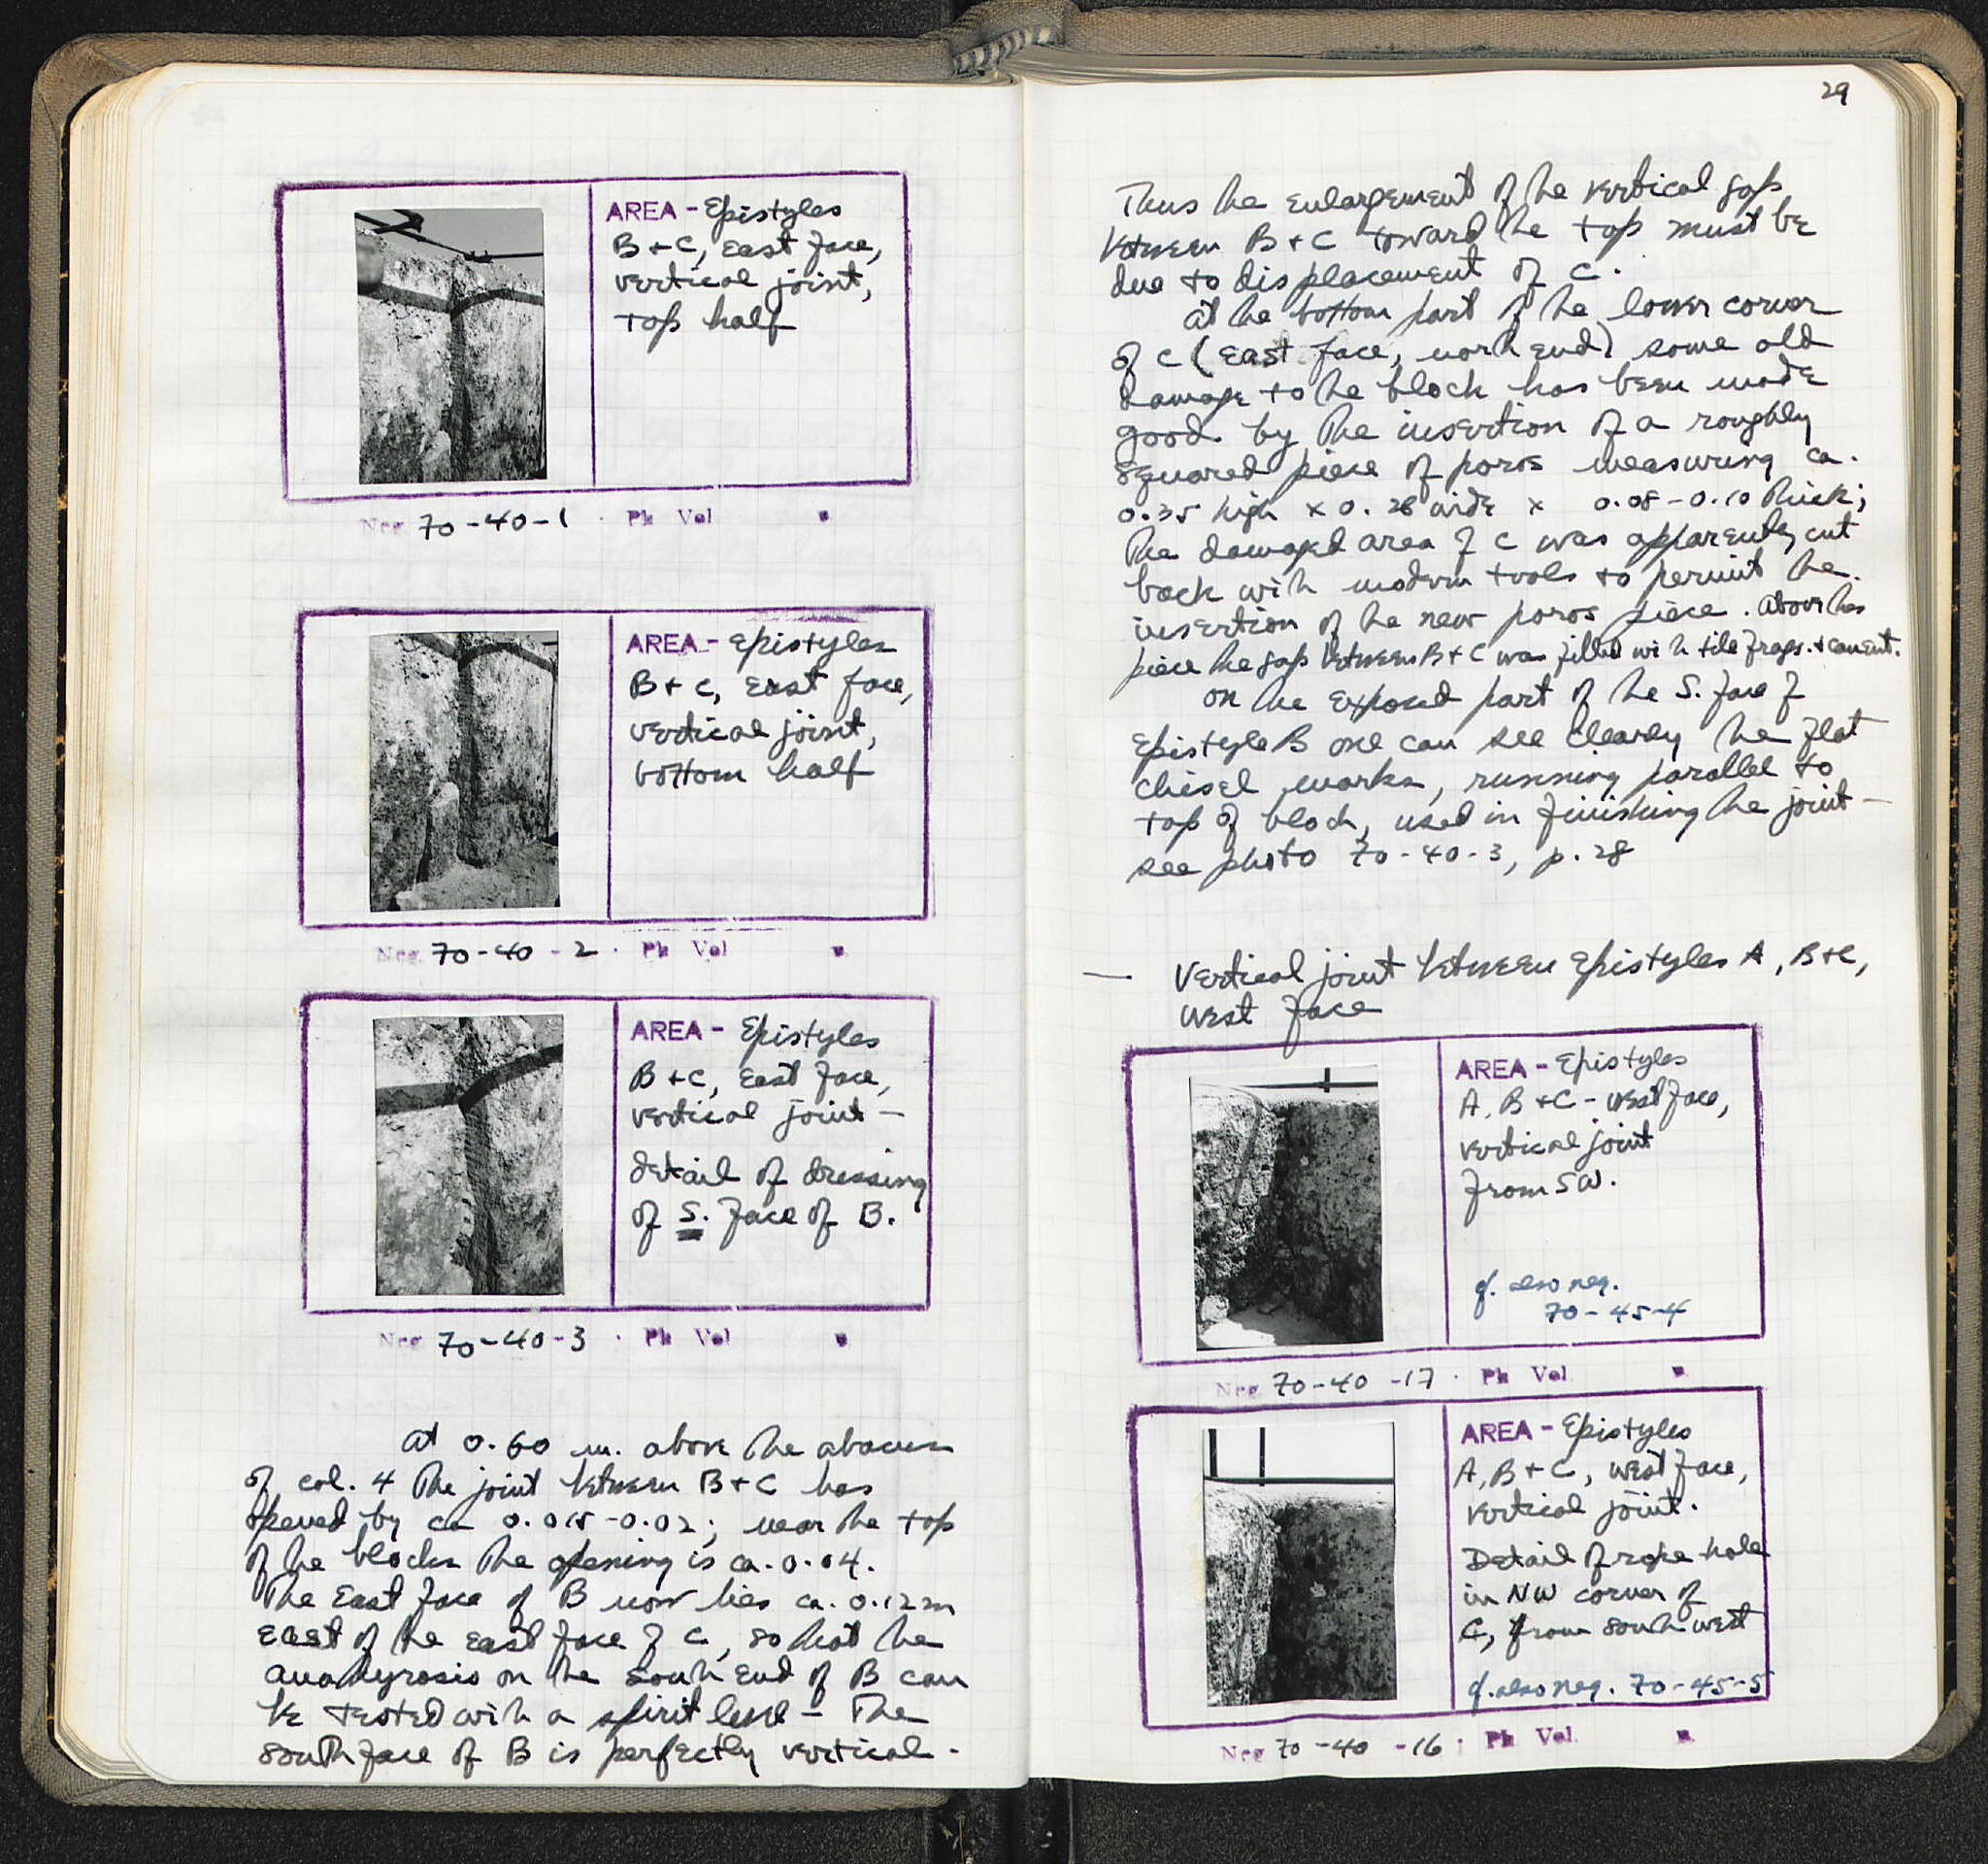 AREA - Epistyles
B + C, East face,
vertical joint,
top half
Neg 70-40-1 · Ph Vol
AREA - Epistyles
B + C, East face,
vertical joint,
bottom half
Neg. 70-40-2 · Ph Vol
AREA - Epistyles
B + C, East face,
vertical joint —
detail of dressing
of S. face of B.
Neg 70-40-3 · Ph Vol
At 0.60 m. above the abacus
of col. 4 the joint between B + C has
opened by ca 0.015-0.02; near the top
of the blocks the opening is ca. 0.04.
The East face of B now lies ca. 0.12 m
east of the east face of C, so that the
anathyrosis on the south end of B can
be tested with a spirit level — The
south face of B is perfectly vertical.
29
Thus the enlargement of the vertical gap
between B + C toward the top must be
due to displacement of C.
At the bottom part of the lower corner
of C (East face, north end) some old
damage to the block has been made
good by the insertion of a roughly
squared piece of poros measuring ca.
0.35 high x 0.28 wide x 0.08-0.10 thick;
The damaged area of C was apparently cut
back with modern tools to permit the
insertion of the new poros piece. Above this
piece the gap between B + C was filled with tile frags. + cement.
On the exposed part of the S. face of
Epistyle B one can see clearly the flat
chisel marks, running parallel to
top of block, used in finishing the joint —
see photo 70-40-3, p. 28
— Vertical joint between Epistyles A, B + C,
west face
AREA - Epistyles
A, B + C - West face,
vertical joint
from SW.
cf. also neg.
70-45-4
Neg 70-40-17 · Ph Vol
AREA - Epistyles
A, B + C, west face,
vertical joint.
Detail of rope hole
in NW corner of
C, from southwest
cf. also neg. 70-45-5
Neg 70-40-16 · Ph Vol